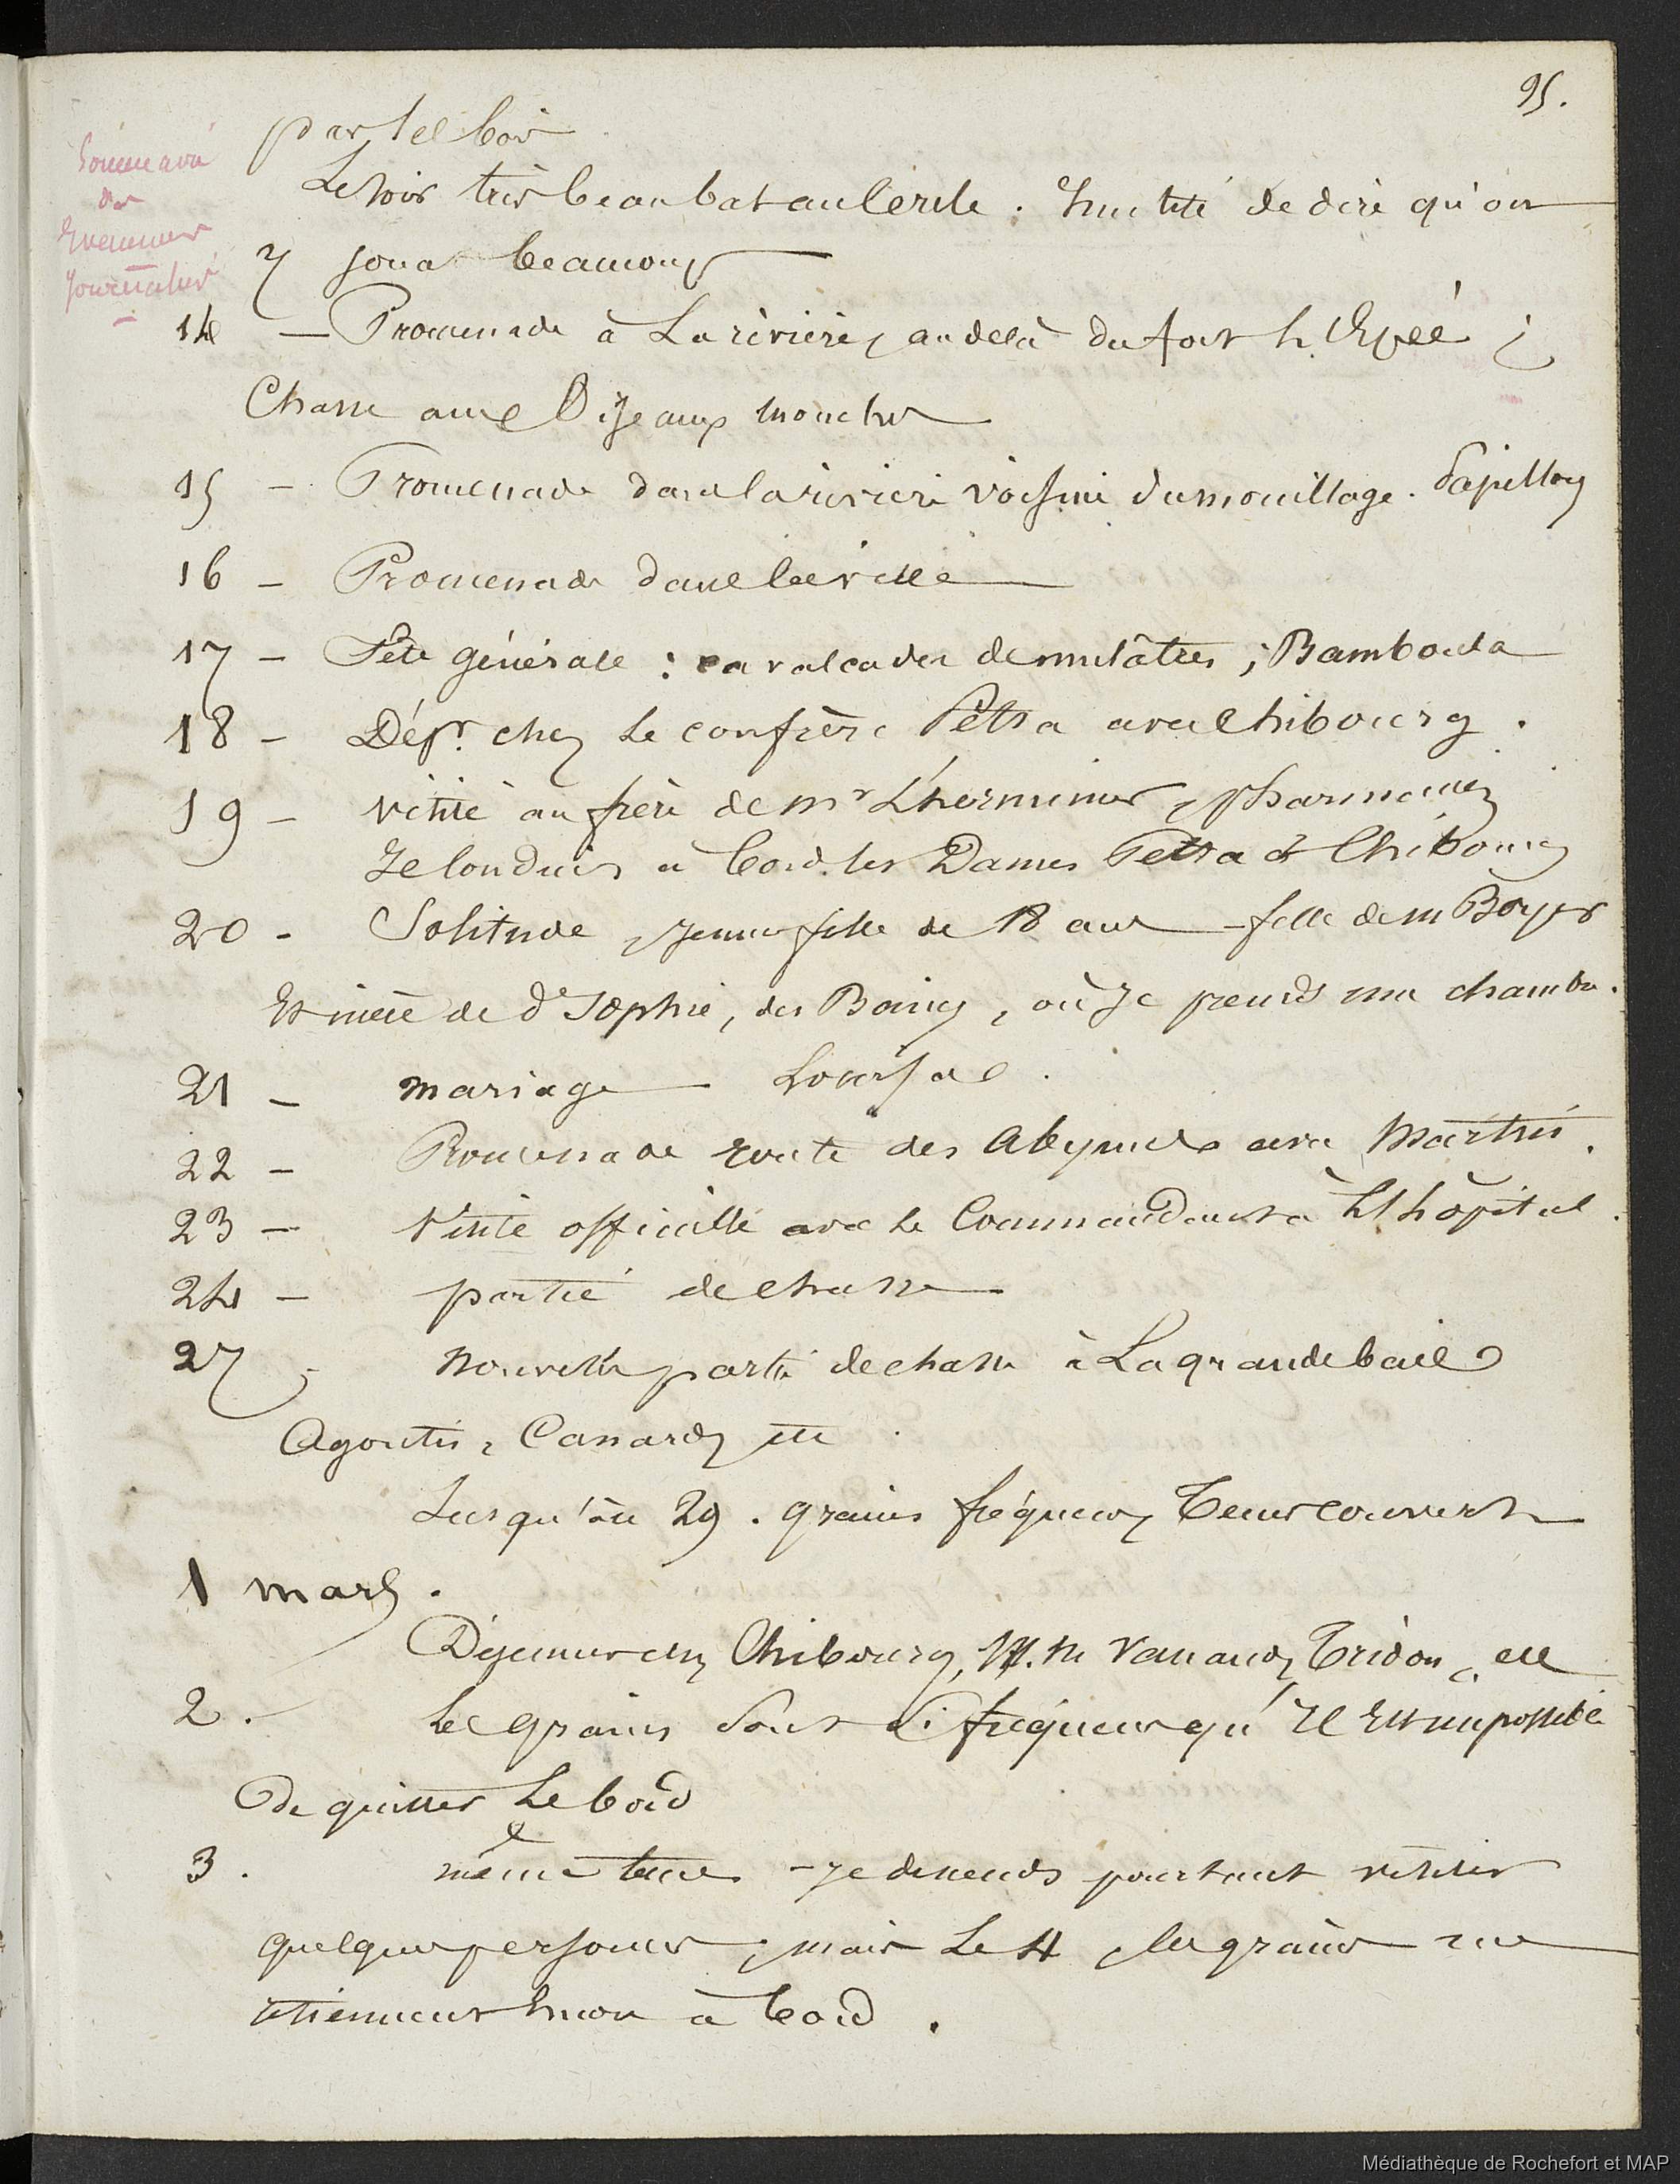 95.
Sommaire
des
Evenemens
journaliers
par tel bois
Le soir très beau bal au Cercle. Inutile de dire qu'on
y joua beaucoup
14 — Promenade à La rivière, au delà du fort L'Epée ;
Chasse aux Oiseaux mouches
15 — Promenade dans la rivière voisine du mouillage. Papillons
16 — Promenade dans la ville
17 — Fête générale : cavalcades de mulâtres ; Bamboula
18 — Déjr. chez le confrère Petra avec Chibourg.
19 — visite au frère de Mr L'herminier, pharmacien
Je conduis à bord les Dames Petra et Chibourg
20 - Solitude, jeune fille de 18 ans — fille de m Boyer
Et nièce de de Sophie, des Bains, où je prends une chambre.
21 — mariage — Loursal.
22 — Promenade route des Abymes avec Martin.
23 — Visite officielle avec le Commandant à L'hôpital.
24 — partie de chasse
27 - nouvelle partie de chasse à La grande baie
Agoutis, Canards etc
Jusqu'au 29. grains fréquens, Tems couvert
1 mars.
Déjeuner chez Chibourg, M.M Vanauld, Tridon, etc
2. Les grains sont si fréquens qu'il est impossible
De quitter Le bord
3. même tems — Je descends pourtant visiter
quelques personnes ; mais Le 4, les grains me
retiennent encore à bord.
Médiathèque de Rochefort et MAP